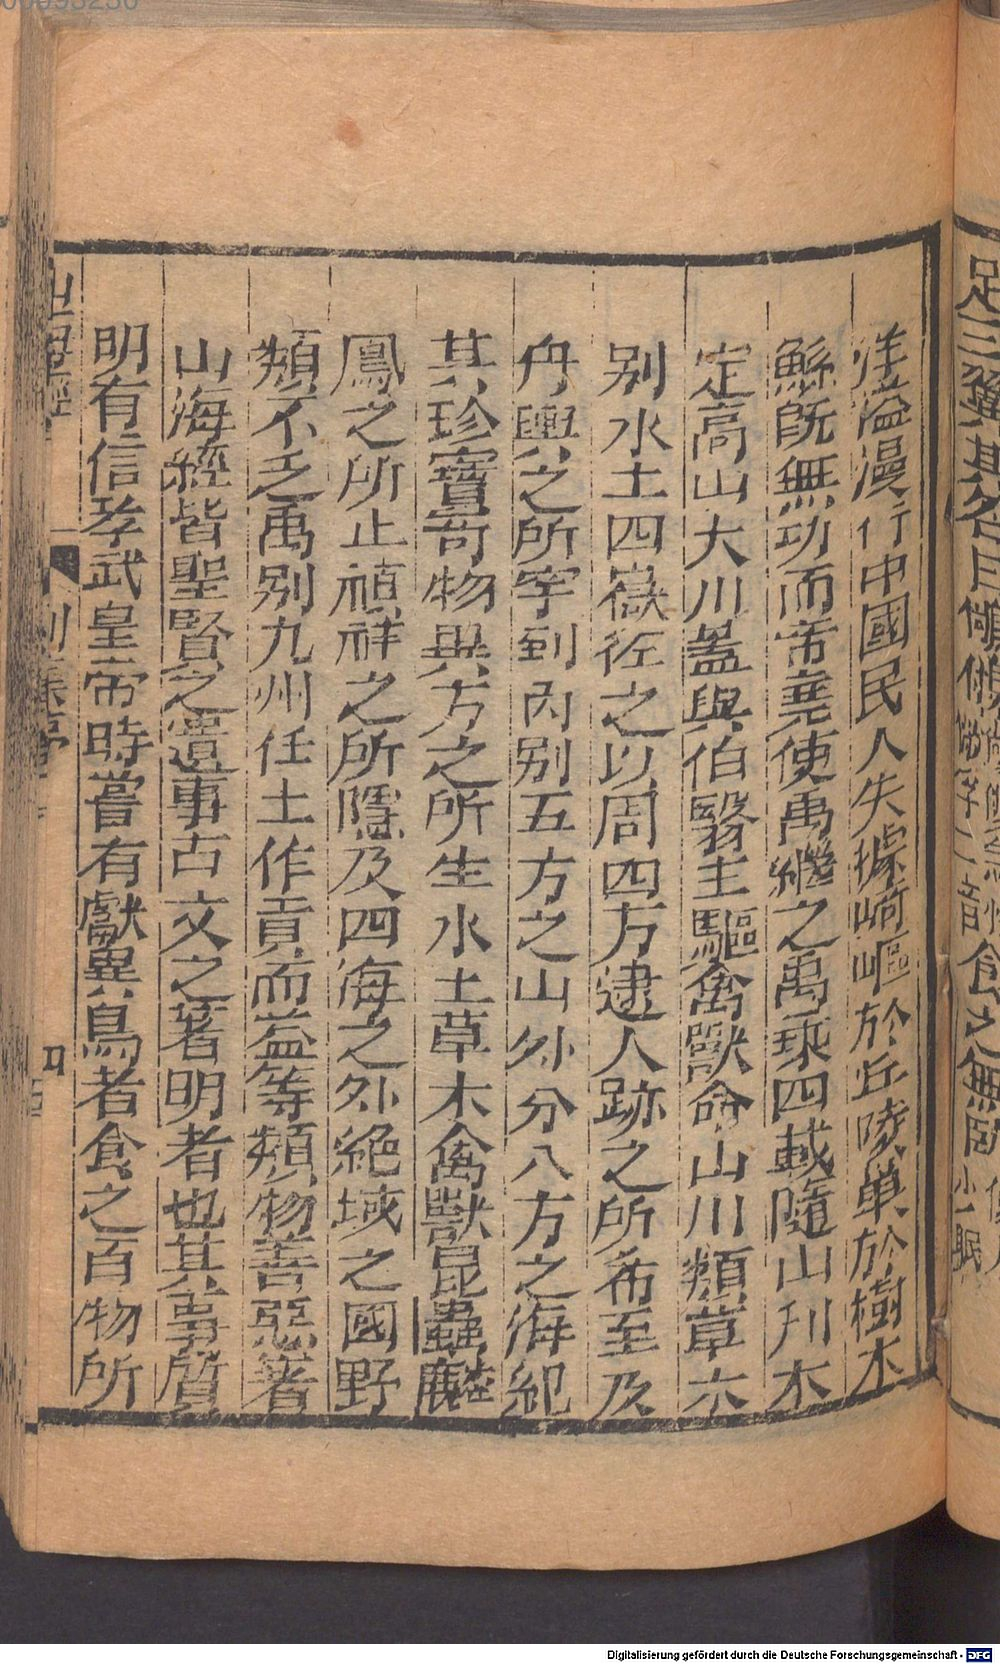 洋溢漫衍中國民人失據崎嶇於丘陵巢於樹木
鯀既無功而帝堯使禹繼之禹乘四載隨山刊木
定高山大川蓋與伯翳主驅禽獸命山川類草木
别水土四嶽佐之以周四方逮人跡之所希至及
舟輿之所罕到内别五方之山外分八方之海紀
其珍寶奇物異方之所生水土草木禽獸昆蟲麟
鳳之所止禎祥之所隱及四海之外絶域之國野
類不乏禹别九州任土作貢而益等類物善惡著
山海經皆聖賢之遺事古文之著明者也其事質
明有信孝武皇帝時嘗有獻異鳥者食之百物所
山海經
四
食之無臥
Digitalisierung gefördert durch die Deutsche Forschungsgemeinschaft - DFG